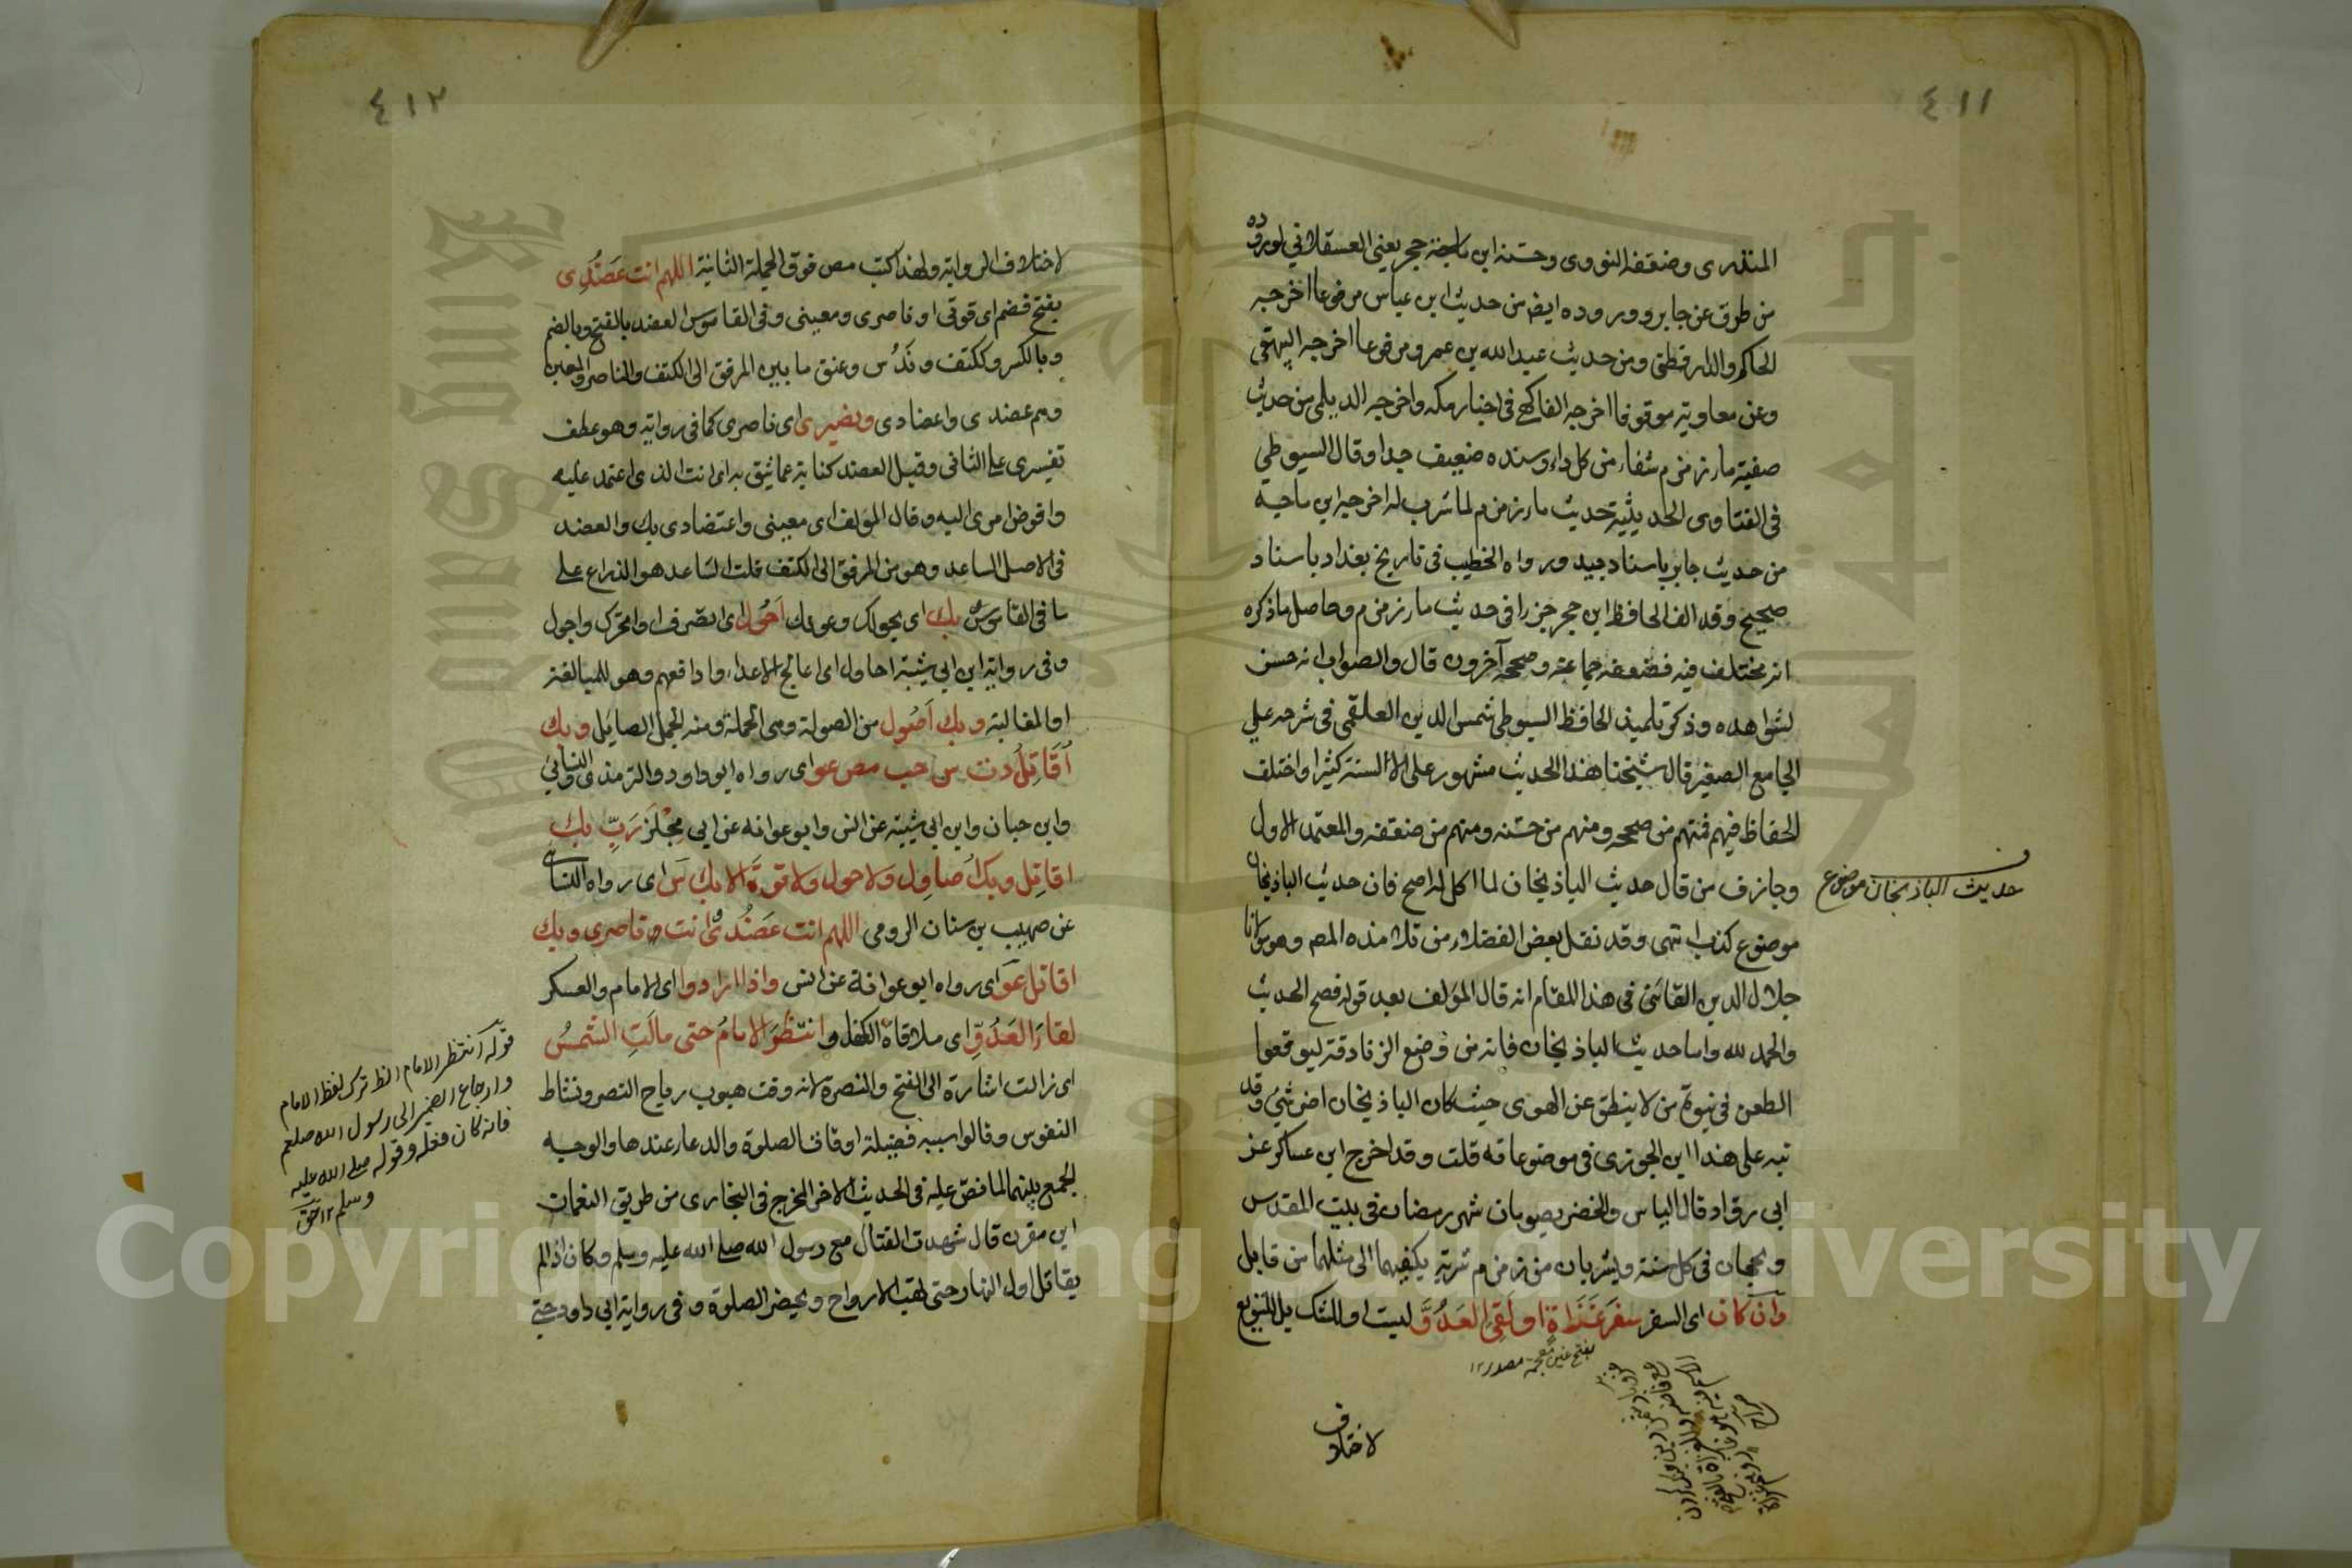 ٤١١
المنذرى وضعفه النووى وحسنه ابن حجر يعنى العسقلانى لوروده
من طرق عن جابر وورد ايضا من حديث ابن عباس مرفوعا اخرجه
الحاكم والدارقطنى ومن حديث عبد الله بن عمرو مرفوعا اخرجه البيهقى
وعن معاوية موقوفا اخرجه الفاكهى فى اخبار مكه واخرجه الديلمى من حديث
صفية ماء زمزم شفاء من كل داء وسنده ضعيف جدا وقال السيوطي
فى الفتاوى الحديثية حديث ماء زمزم لما شرب له اخرجه ابن ماجه
من حديث جابر باسناد جيد ورواه الخطيب فى تاريخ بغداد باسناد
صحيح وقد الف الحافظ ابن حجر جزءا فى حديث ماء زمزم وحاصل ما ذكره
انه مختلف فيه فضعفه جماعة وصححه آخرون قال والصواب انه حسن
لشواهده وذكر تلميذ الحافظ السيوطى شمس الدين العلقمى فى شرحه على
الجامع الصغير قال شيخنا هذا الحديث مشهور على الالسنة كثيرا واختلف
الحفاظ فيه فمنهم من صححه ومنهم من حسنه ومنهم من ضعفه والمعتمد الاول
وجازف من قال حديث الباذنجان لما اكل له اصح فان حديث الباذنجان
موضوع كذب انتهى وقد نقل بعض الفضلاء من تلامذة المص وهو مولانا
جلال الدين القائنى فى هذا المقام انه قال المؤلف بعد قوله فصح الحديث
والحمد لله واما حديث الباذنجان فانه من وضع الزنادقة ليوقعوا
الطعن فى نبوة من لا ينطق عن الهوى حيث كان الباذنجان اضر شئ وقد
نبه على هذا ابن الجوزى فى موضوعاته قلت وقد اخرج ابن عساكر عن
ابى رواد قال الياس والخضر يصومان شهر رمضان فى بيت المقدس
ويحجان فى كل سنة ويشربان من زمزم شربة يكفيهما الى مثلها من قابل
وان كان اى السفر سفر غزاة او لقى العدو ليست او للشك بل للتنويع
حديث الباذنجان موضوع
بفتح غين معجمة مصدر ١٢
لاختلاف
٤١٢
لاختلاف الرواية ولهذا كتب مص فوق الجملة الثانية اللهم انت عَضُدِى
بفتح فضم اى قوتى او ناصرى ومعينى وفى القاموس العضد بالفتح وبالضم
وبالكسر وككتف وندُس وعنق ما بين المرفق الى الكتف والناصر والمعين
وهم عضدى واعضادى ونصيرى اى ناصرى كما فى رواية وهو عطف
تفسيرى على الثانى وقيل العضد كناية عما يثق به اى انت الذى اعتمد عليه
وافوض امرى اليه وقال المؤلف اى معينى واعتضادى بك والعضد
فى الاصل الساعد وهو من المرفق الى الكتف قلت الساعد هو الذراع على
ما فى القاموس بك اى بحولك وعونك اَحُول اى اتصرف او اتحرك واجول
وفى رواية ابن ابى شيبة احاول اى اعالج الاعداء وادافعهم وهو للمبالغة
او المغالبة وبك اَصُول من الصولة وهى الحملة ومنه الجمل الصايل وبك
اُقَاتِلُ دت س حب مص عو اى رواه ابو داود والترمذى والنسائى
وابن حبان وابن ابى شيبة عن انس وابو عوانه عن ابى مِجْلَز رَبِّ بك
اقاتِل وبك اُصاوِل ولا حول ولا قوة الا بك س اى رواه النسائى
عن صهيب بن سنان الرومى اللهم انت عَضُدى وانت ناصرى وبك
اقاتل عو اى رواه ابو عوانة عن انس واذا ارادوا اى الامام والعسكر
لقاءَ العَدُوِّ اى ملاقاة الكفار وانتظَرَ الامامُ حتى مالَتِ الشمسُ
اى زالت اشارة الى الفتح والنصرة لانه وقت هبوب رياح النصر ونشاط
النفوس وقالوا سببه فضيلة اوقات الصلوة والدعاء عندها والوجه
الجمع بينهما لما نص عليه فى الحديث الاخر المخرج فى البخارى من طريق النعمان
ابن مقرن قال شهدت القتال مع رسول الله صلى الله عليه وسلم وكان اذا لم
يقاتل اول النهار حتى تهب الارواح ويحضر الصلوة وفى رواية ابى داود حتى
قوله انتظر الامام الظ ترك لفظ الامام
وارجاع الضمير الى رسول الله صلعم
فانه كان فعله وقوله صلى الله عليه
وسلم ١٢
Copyright © King Saud University